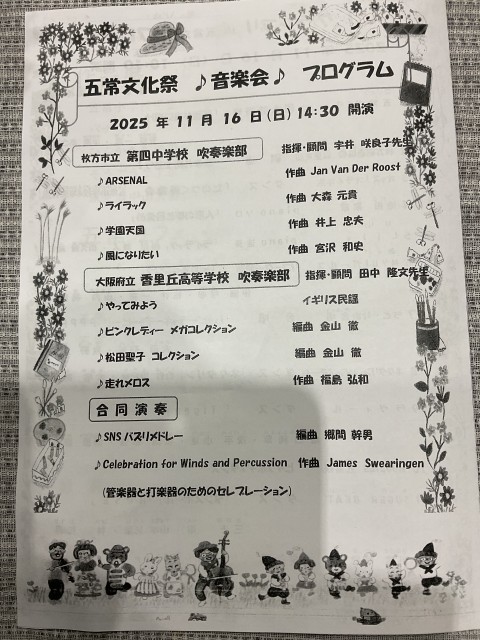 五常文化祭 ♪音楽会♪ プログラム
2025 年 11 月 16 日(日) 14:30 開演
枚方市立 第四中学校 吹奏楽部 指揮・顧問 宇井 咲良子先生
♪ARSENAL 作曲 Jan Van Der Roost
♪ライラック 作曲 大森 元貴
♪学園天国 作曲 井上 忠夫
♪風になりたい 作曲 宮沢 和史
大阪府立 香里丘高等学校 吹奏楽部 指揮・顧問 田中 隆文先生
♪やってみよう イギリス民謡
♪ピンクレディー メガコレクション 編曲 金山 徹
♪松田聖子 コレクション 編曲 金山 徹
♪走れメロス 作曲 福島 弘和
合同演奏
♪SNS バズリメドレー 編曲 郷間 幹男
♪Celebration for Winds and Percussion 作曲 James Swearingen
(管楽器と打楽器のためのセレブレーション)